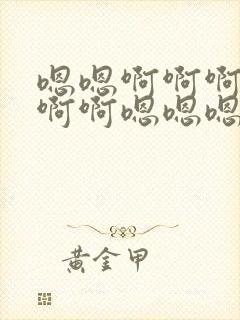 嗯嗯啊啊啊
啊啊嗯嗯嗯
黄金甲